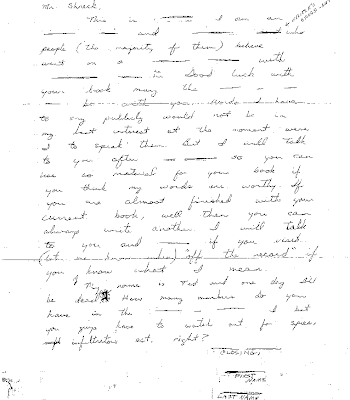 Mr. Shreck,
This is I am an
and who
people (the majority of them) believe
went on a with
Good luck with
your book many the
be with you. Words I have
to say publicly would not be in
my best interest at the moment were
I to speak them but I will talk
to you after so you can
use as material for your book if
you think my words are worthy. If
you are almost finished with your
current book, well then you can
always write another. I will talk
to you and if you need.
(let me know when) "off the record" if
you know what I mean.
My name is Ted and one day I'll
be dead. How many do you
have in the I bet
you guys have to watch out for spies,
infiltrators est. right?
CLOSING,
FIRST
NAME
LAST NAME